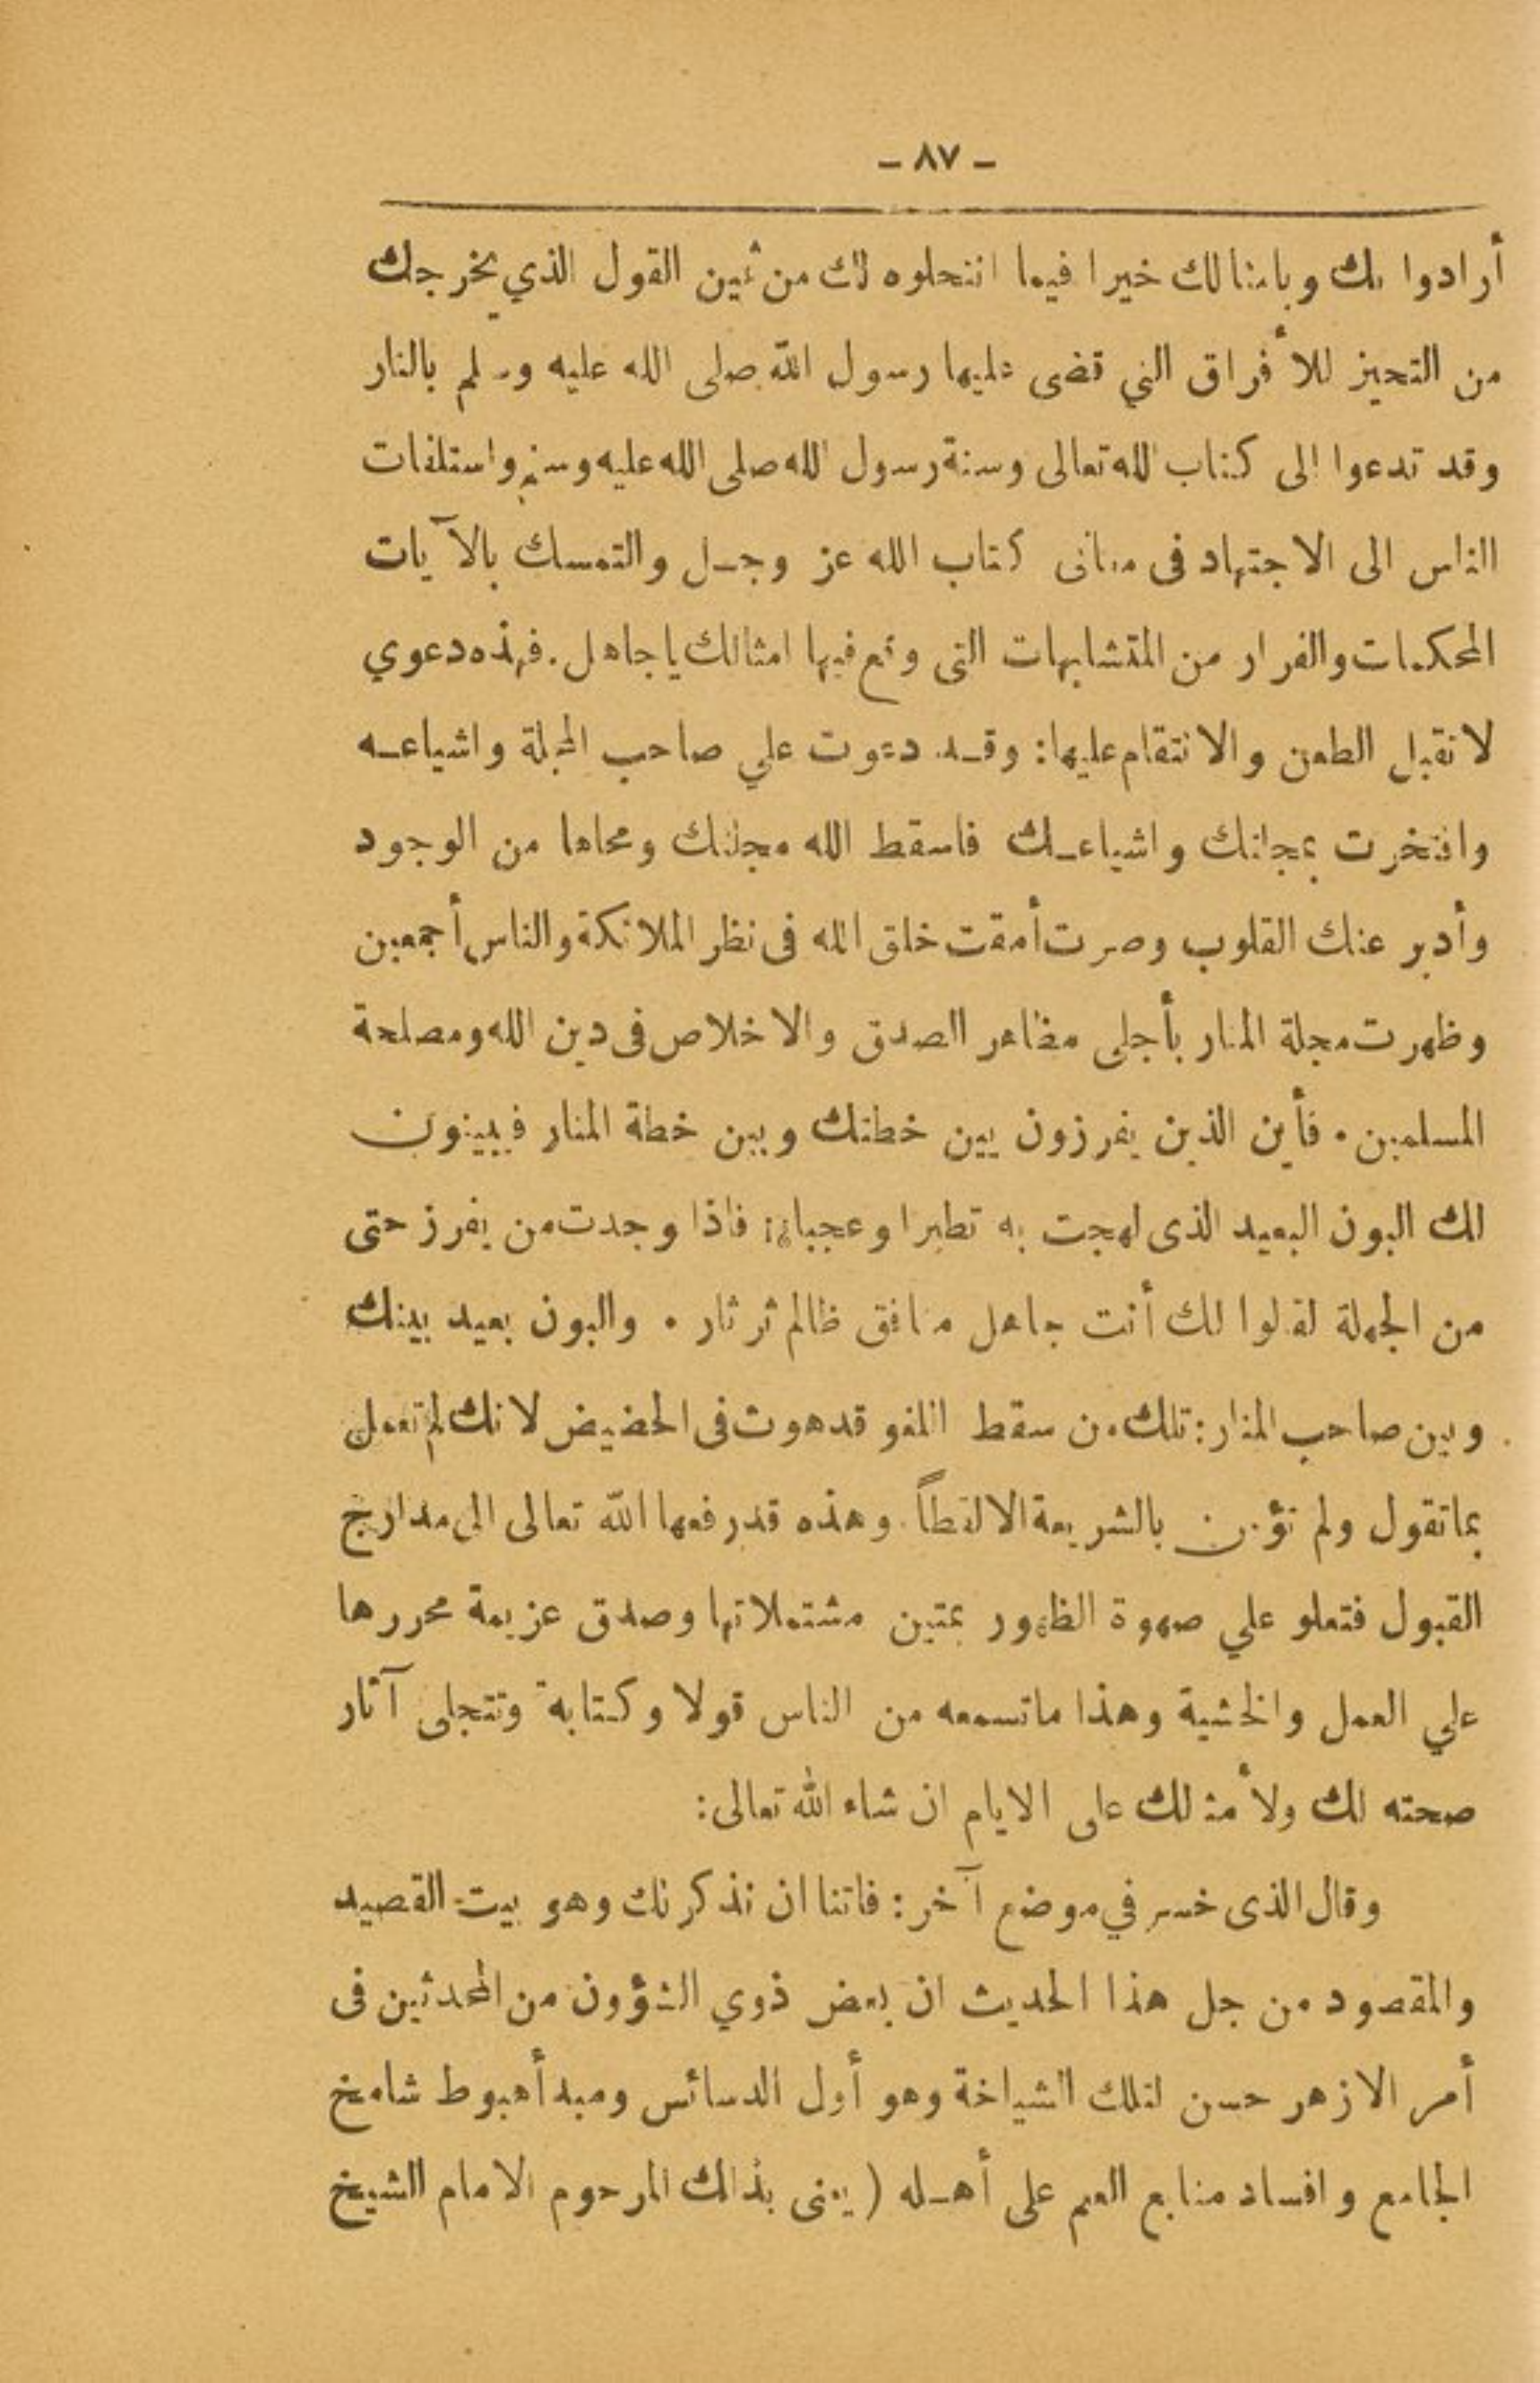 - ٨٧ -
أرادوا بك وبامثالك خيرا فيما انتحلوه لك من ثمين القول الذي يخرجك
من التحيز للأفراق التي قضى عليها رسول الله صلى الله عليه وسلم بالنار
وقد تدعوا الى كتاب الله تعالى وسنة رسول الله صلى الله عليه وسلم واستلفات
الناس الى الاجتهاد فى معانى كتاب الله عز وجـل والتمسك بالآيات
المحكمات والفرار من المتشابهات التى وقع فيها امثالك ياجاهل. فهذه دعوي
لاتقبل الطعن والانتقام عليها: وقـد دعوت علي صاحب المجلة واشياعـه
وافتخرت بمجلتك واشياعـك فاسقط الله مجلتك ومحاها من الوجود
وأدبر عنك القلوب وصرت أمقت خلق الله فى نظر الملائكة والناس أجمعين
وظهرت مجلة المنار بأجلى مظاهر الصدق والاخلاص فى دين الله ومصلحة
المسلمين. فأين الذين يفرزون بين خطتك وبين خطة المنار فيبينون
لك البون البعيد الذى لهجت به تطيرا وعجبا؟؛ فاذا وجدت من يفرز حتى
من الجهلة لقالوا لك أنت جاهل منافق ظالم ثرثار. والبون بعيد بينك
وبين صاحب المنار: تلك من سقط اللغو قد هوت فى الحضيض لانك لم تعمل
بماتقول ولم تؤمن بالشريعة الا لقطاً. وهذه قدرفعها الله تعالى الى مدارج
القبول فتعلو علي صهوة الظهور بمتين مشتملاتها وصدق عزيمة محررها
علي العمل والخشية وهذا ماتسمعه من الناس قولا وكتابة وتتجلى آثار
صحته لك ولأمثالك على الايام ان شاء الله تعالى:
وقال الذى خسر في موضع آخر: فاتنا ان نذكر نك وهو بيت القصيد
والمقصود من جل هذا الحديث ان بعض ذوي الشؤون من المحدثين فى
أمر الازهر حسن لتلك الشياخة وهو أول الدسائس ومبدأ هبوط شامخ
الجامع وافساد منابع العلم على أهـله (يعنى بذلك المرحوم الامام الشيخ